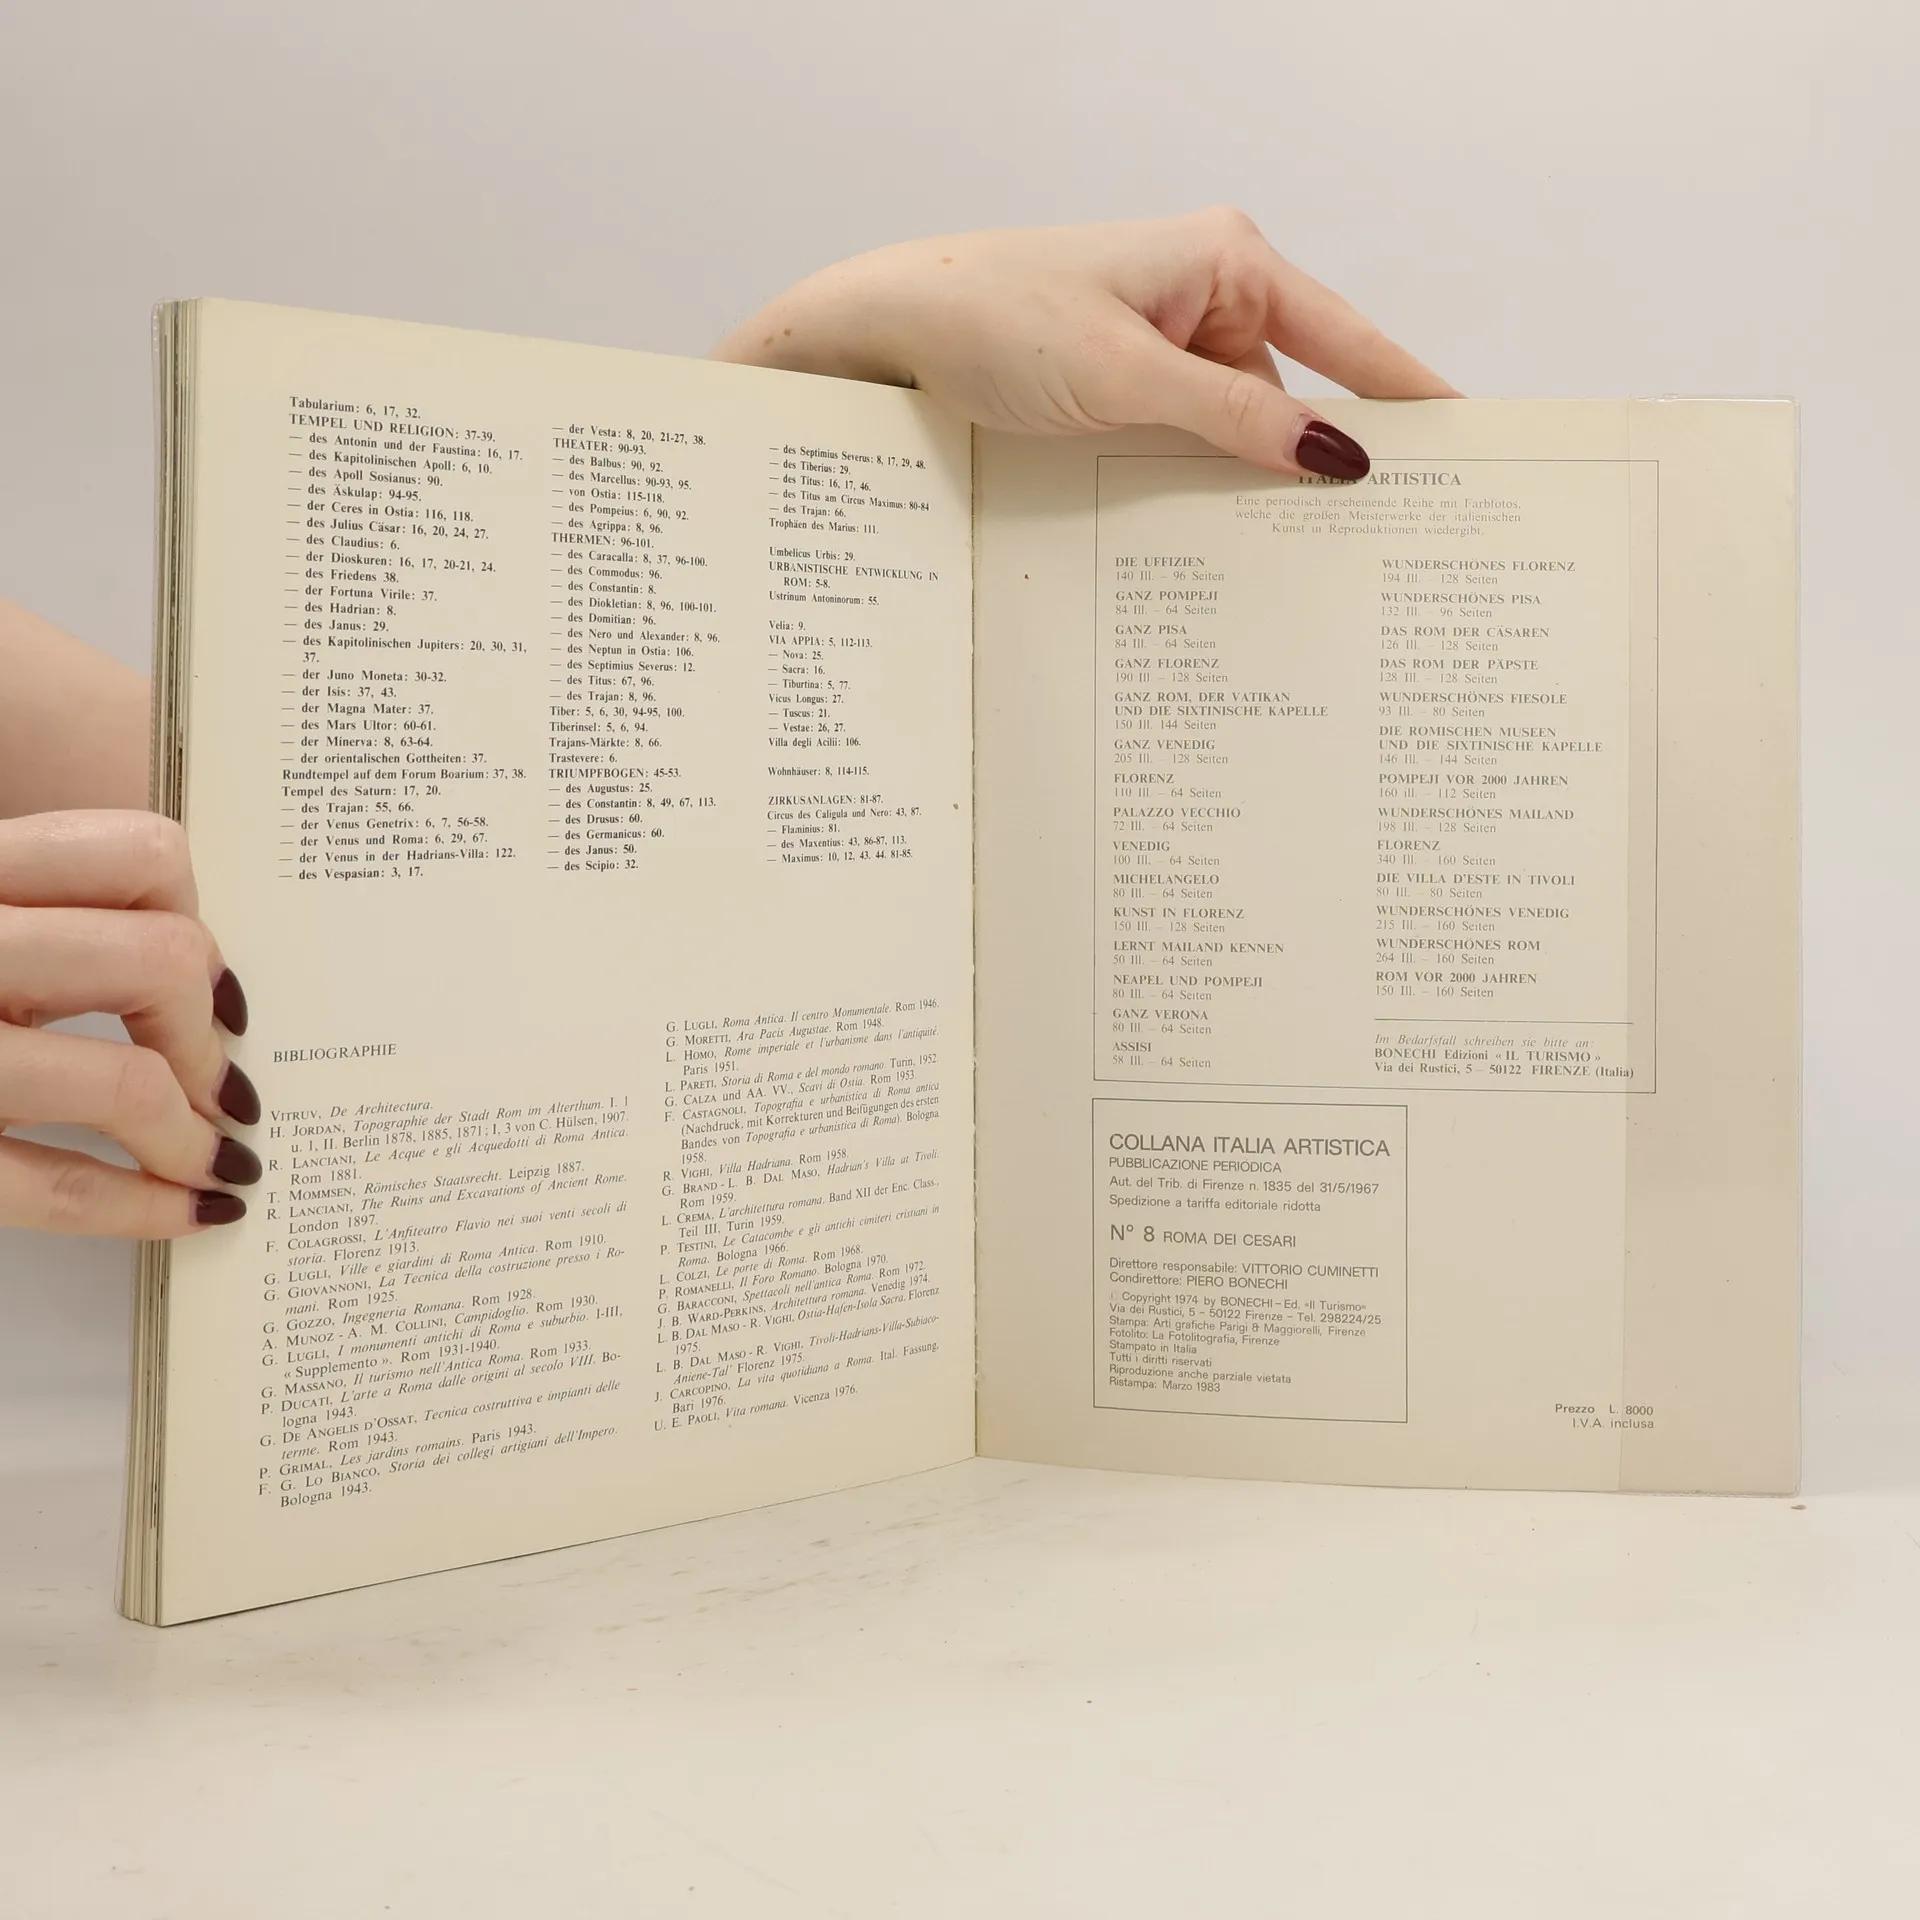 Tabularium: 6, 17, 32.
TEMPEL UND RELIGION: 37-39.
— des Antonin und der Faustina: 16, 17.
— des Kapitolinischen Apoll: 6, 10.
— des Apoll Sosianus: 90.
— des Äskulap: 94-95.
— der Ceres in Ostia: 116, 118.
— des Julius Cäsar: 16, 20, 24, 27.
— des Claudius: 6.
— der Dioskuren: 16, 17, 20-21, 24.
— des Friedens 38.
— der Fortuna Virile: 37.
— des Hadrian: 8.
— des Janus: 29.
— des Kapitolinischen Jupiters: 20, 30, 31,
37.
— der Juno Moneta: 30-32.
— der Isis: 37, 43.
— der Magna Mater: 37.
— des Mars Ultor: 60-61.
— der Minerva: 8, 63-64.
— der orientalischen Gottheiten: 37.
Rundtempel auf dem Forum Boarium: 37, 38.
Tempel des Saturn: 17, 20.
— des Trajan: 55, 66.
— der Venus Genetrix: 6, 7, 56-58.
— der Venus und Roma: 6, 29, 67.
— der Venus in der Hadrians-Villa: 122.
— des Vespasian: 3, 17.
— der Vesta: 8, 20, 21-27, 38.
THEATER: 90-93.
— des Balbus: 90, 92.
— des Marcellus: 90-93, 95.
— von Ostia: 115-118.
— des Pompeius: 6, 90, 92.
— des Agrippa: 8, 96.
THERMEN: 96-101.
— des Caracalla: 8, 37, 96-100.
— des Commodus: 96.
— des Constantin: 8.
— des Diokletian: 8, 96, 100-101.
— des Domitian: 96.
— des Nero und Alexander: 8, 96.
— des Neptun in Ostia: 106.
— des Septimius Severus: 12.
— des Titus: 67, 96.
— des Trajan: 8, 96.
Tiber: 5, 6, 30, 94-95, 100.
Tiberinsel: 5, 6, 94.
Trajans-Märkte: 8, 66.
Trastevere: 6.
TRIUMPFBOGEN: 45-53.
— des Augustus: 25.
— des Constantin: 8, 49, 67, 113.
— des Drusus: 60.
— des Germanicus: 60.
— des Janus: 50.
— des Scipio: 32.
— des Septimius Severus: 8, 17, 29, 48.
— des Tiberius: 29.
— des Titus: 16, 17, 46.
— des Titus am Circus Maximus: 80-84
— des Trajan: 66.
Trophäen des Marius: 111.
Umbelicus Urbis: 29.
URBANISTISCHE ENTWICKLUNG IN
ROM: 5-8.
Ustrinum Antoninorum: 55.
Velia: 9.
VIA APPIA: 5, 112-113.
— Nova: 25.
— Sacra: 16.
— Tiburtina: 5, 77.
Vicus Longus: 27.
— Tuscus: 21.
— Vestae: 26, 27.
Villa degli Acilii: 106.
Wohnhäuser: 8, 114-115.
ZIRKUSANLAGEN: 81-87.
Circus des Caligula und Nero: 43, 87.
— Flaminius: 81.
— des Maxentius: 43, 86-87, 113.
— Maximus: 10, 12, 43, 44, 81-85.
BIBLIOGRAPHIE
VITRUV, De Architectura.
H. JORDAN, Topographie der Stadt Rom im Alterthum. I. 1
u. 1, II. Berlin 1878, 1885, 1871; I, 3 von C. Hülsen, 1907.
R. LANCIANI, Le Acque e gli Acquedotti di Roma Antica.
Rom 1881.
T. MOMMSEN, Römisches Staatsrecht. Leipzig 1887.
R. LANCIANI, The Ruins and Excavations of Ancient Rome.
London 1897.
F. COLAGROSSI, L'Anfiteatro Flavio nei suoi venti secoli di
storia. Florenz 1913.
G. LUGLI, Ville e giardini di Roma Antica. Rom 1910.
G. GIOVANNONI, La Tecnica della costruzione presso i Ro-
mani. Rom 1925.
G. GOZZO, Ingegneria Romana. Rom 1928.
A. MUNOZ - A. M. COLLINI, Campidoglio. Rom 1930.
G. LUGLI, I monumenti antichi di Roma e suburbio. I-III,
« Supplemento ». Rom 1931-1940.
G. MASSANO, Il turismo nell'Antica Roma. Rom 1933.
P. DUCATI, L'arte a Roma dalle origini al secolo VIII. Bo-
logna 1943.
G. DE ANGELIS D'OSSAT, Tecnica costruttiva e impianti delle
terme. Rom 1943.
P. GRIMAL, Les jardins romains. Paris 1943.
F. G. LO BIANCO, Storia dei collegi artigiani dell'Impero.
Bologna 1943.
G. LUGLI, Roma Antica. Il centro Monumentale. Rom 1946.
G. MORETTI, Ara Pacis Augustae. Rom 1948.
L. HOMO, Rome imperiale et l'urbanisme dans l'antiquité.
Paris 1951.
L. PARETI, Storia di Roma e del mondo romano. Turin, 1952.
G. CALZA und AA. VV., Scavi di Ostia. Rom 1953.
F. CASTAGNOLI, Topografia e urbanistica di Roma antica
(Nachdruck, mit Korrekturen und Beifügungen des ersten
Bandes von Topografia e urbanistica di Roma). Bologna
1958.
R. VIGHI, Villa Hadriana. Rom 1958.
G. BRAND - L. B. DAL MASO, Hadrian's Villa at Tivoli.
Rom 1959.
L. CREMA, L'architettura romana. Band XII der Enc. Class.,
Teil III, Turin 1959.
P. TESTINI, Le Catacombe e gli antichi cimiteri cristiani in
Roma. Bologna 1966.
L. COLZI, Le porte di Roma. Rom 1968.
P. ROMANELLI, Il Foro Romano. Bologna 1970.
G. BARACCONI, Spettacoli nell'antica Roma. Rom 1972.
J. B. WARD-PERKINS, Architettura romana. Venedig 1974.
L. B. DAL MASO - R. VIGHI, Ostia-Hafen-Isola Sacra. Florenz
1975.
L. B. DAL MASO - R. VIGHI, Tivoli-Hadrians-Villa-Subiaco-
Aniene-Tal' Florenz 1975.
J. CARCOPINO, La vita quotidiana a Roma. Ital. Fassung,
Bari 1976.
U. E. PAOLI, Vita romana. Vicenza 1976.
ITALIA ARTISTICA
Eine periodisch erscheinende Reihe mit Farbfotos,
welche die großen Meisterwerke der italienischen
Kunst in Reproduktionen wiedergibt.
DIE UFFIZIEN
140 Ill. – 96 Seiten
GANZ POMPEJI
84 Ill. – 64 Seiten
GANZ PISA
84 Ill. – 64 Seiten
GANZ FLORENZ
190 Ill – 128 Seiten
GANZ ROM, DER VATIKAN
UND DIE SIXTINISCHE KAPELLE
150 Ill. 144 Seiten
GANZ VENEDIG
205 Ill. – 128 Seiten
FLORENZ
110 Ill. – 64 Seiten
PALAZZO VECCHIO
72 Ill. – 64 Seiten
VENEDIG
100 Ill. – 64 Seiten
MICHELANGELO
80 Ill. – 64 Seiten
KUNST IN FLORENZ
150 Ill. – 128 Seiten
LERNT MAILAND KENNEN
50 Ill. – 64 Seiten
NEAPEL UND POMPEJI
80 Ill. – 64 Seiten
GANZ VERONA
80 Ill. – 64 Seiten
ASSISI
58 Ill. – 64 Seiten
WUNDERSCHÖNES FLORENZ
194 Ill. – 128 Seiten
WUNDERSCHÖNES PISA
132 Ill. – 96 Seiten
DAS ROM DER CÄSAREN
126 Ill. – 128 Seiten
DAS ROM DER PÄPSTE
128 Ill. – 128 Seiten
WUNDERSCHÖNES FIESOLE
93 Ill. – 80 Seiten
DIE RÖMISCHEN MUSEEN
UND DIE SIXTINISCHE KAPELLE
146 Ill. – 144 Seiten
POMPEJI VOR 2000 JAHREN
160 ill. – 112 Seiten
WUNDERSCHÖNES MAILAND
198 Ill. – 128 Seiten
FLORENZ
340 Ill. – 160 Seiten
DIE VILLA D'ESTE IN TIVOLI
80 Ill. – 80 Seiten
WUNDERSCHÖNES VENEDIG
215 Ill. – 160 Seiten
WUNDERSCHÖNES ROM
264 Ill. – 160 Seiten
ROM VOR 2000 JAHREN
150 Ill. – 160 Seiten
Im Bedarfsfall schreiben sie bitte an:
BONECHI Edizioni « IL TURISMO »
Via dei Rustici, 5 – 50122 FIRENZE (Italia)
COLLANA ITALIA ARTISTICA
PUBBLICAZIONE PERIÓDICA
Aut. del Trib. di Firenze n. 1835 del 31/5/1967
Spedizione a tariffa editoriale ridotta
N° 8 ROMA DEI CESARI
Direttore responsabile: VITTORIO CUMINETTI
Condirettore: PIERO BONECHI
© Copyright 1974 by BONECHI – Ed. »Il Turismo«
Via dei Rustici, 5 – 50122 Firenze – Tel. 298224/25
Stampa: Arti grafiche Parigi & Maggiorelli, Firenze
Fotolito: La Fotolitografia, Firenze
Stampato in Italia
Tutti i diritti riservati
Riproduzione anche parziale vietata
Ristampa: Marzo 1983
Prezzo L. 8000
I.V.A. inclusa